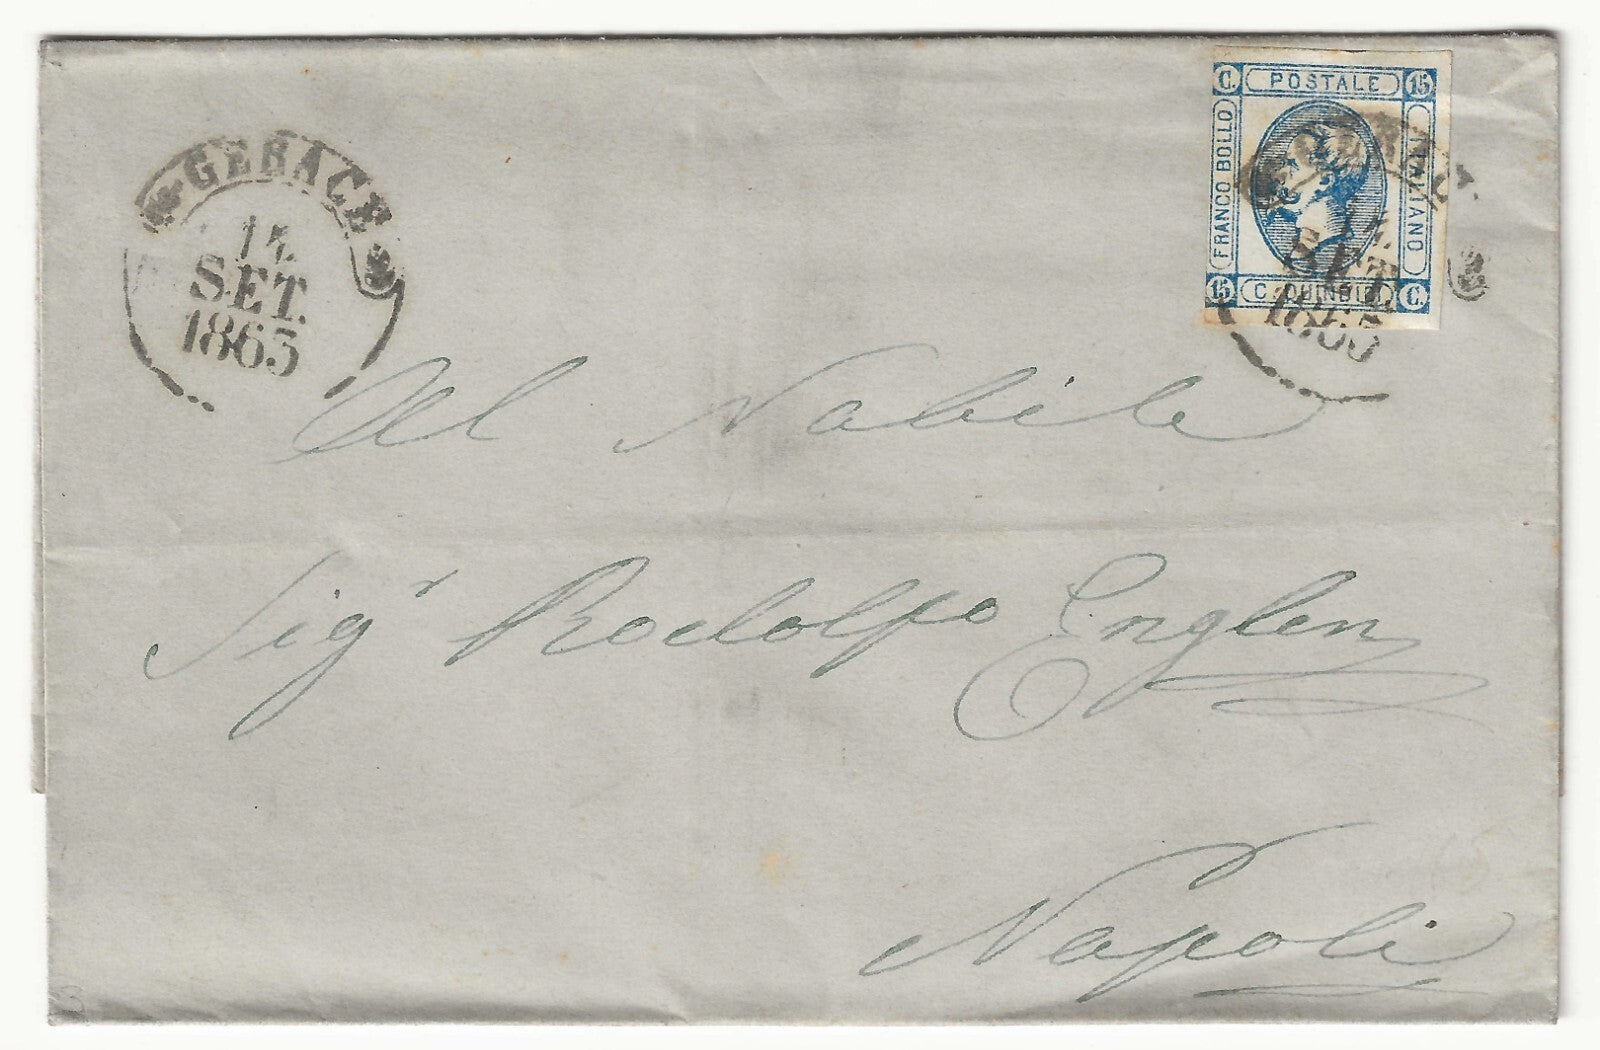 GERACE
14
SET.
1863
C. POSTALE 15
FRANCO BOLLO
ITALIANO
15 C. QUINDICI C.
GERACE
14
SET.
1863
Al Nobile
Sig.r Rodolfo Englen
Napoli